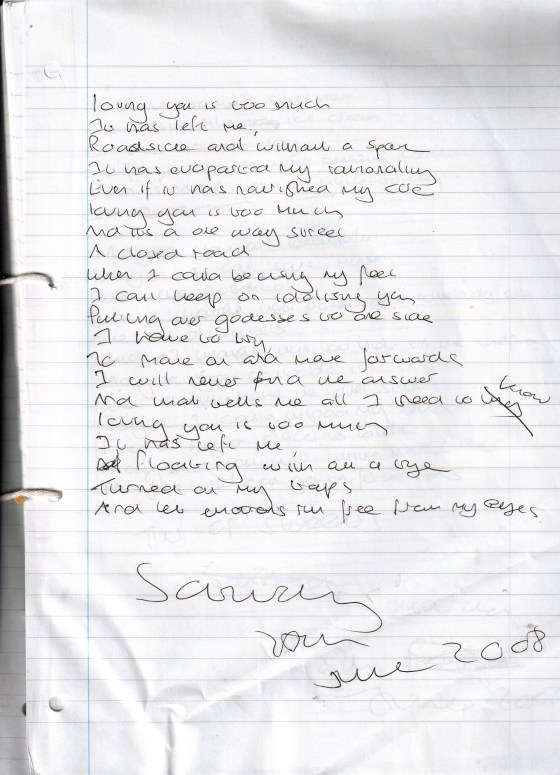 loving you is too much
It has left me,
Roadside and without a spare
It has evaporated my rationality
Even if it has nourished my core
loving you is too much
And its a one way street
A closed road
when I could be using my feet
I can keep on idolising you
Putting other godesses to one side
I have to try
To move on and move forwards
I will never find the answer
And that tells me all I need to know
loving you is too much
It has left me
floating without a tyre
Turned on my taps
And let emotions run free from my eyes
Saturday
June 2008